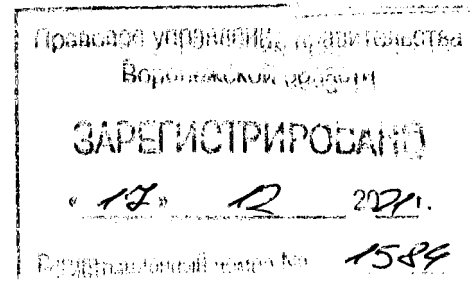 Правовое управление правительства
Воронежской области
ЗАРЕГИСТРИРОВАНО
« 17 » 12 2021г.
Регистрационный номер № 1584